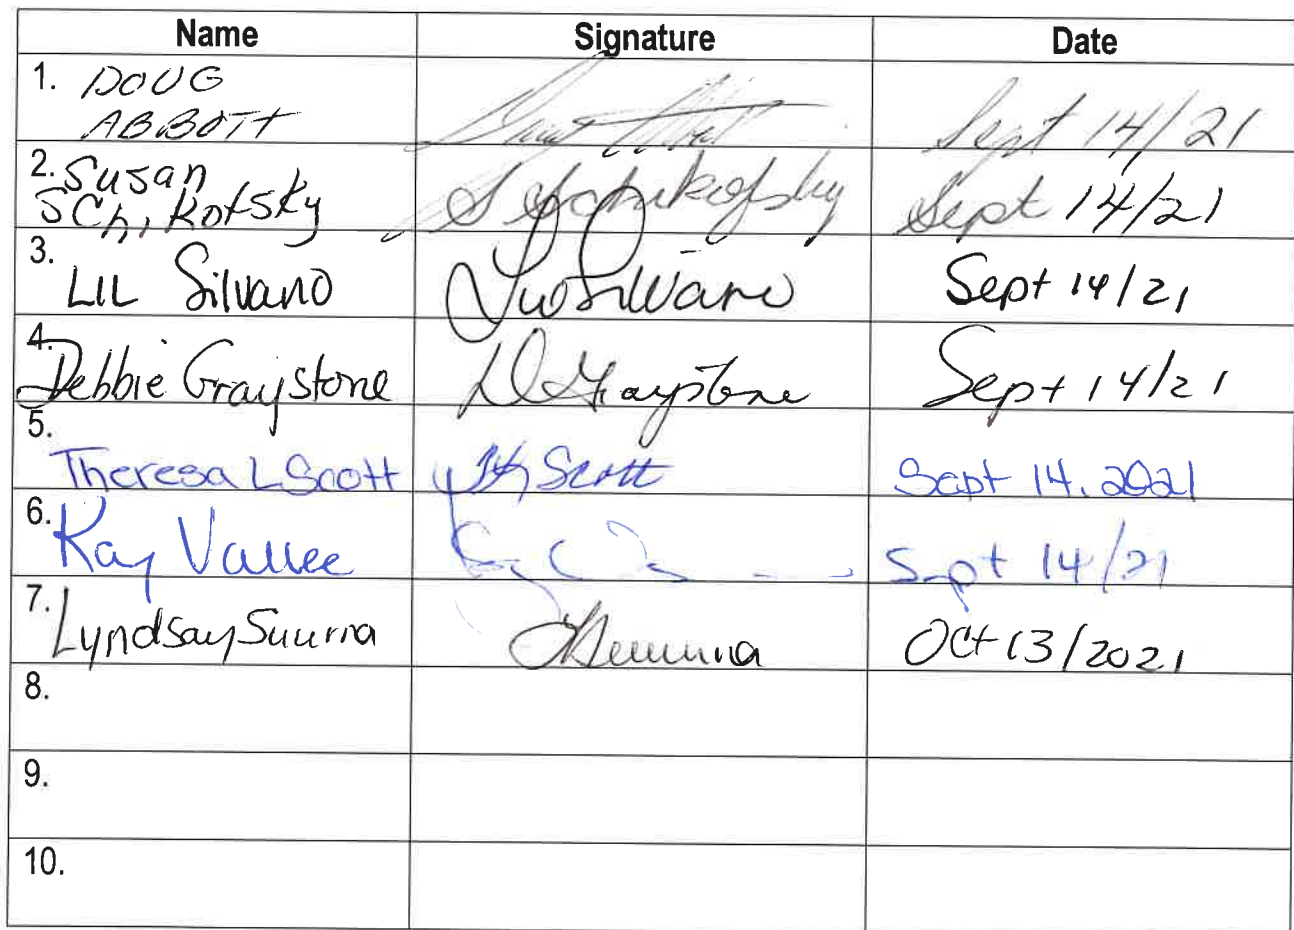 Name Signature Date
1. DOUG
ABBOTT Sept 14/21
2. Susan
Schikofsky S Schikofsky Sept 14/21
3. LIL Silvano Silvano Sept 14/21
4. Debbie Graystone D Graystone Sept 14/21
5. Theresa L Scott Scott Sept 14, 2021
6. Kay Vallee Sept 14/21
7. Lyndsay Suurna Suurna Oct 13/2021
8.
9.
10.